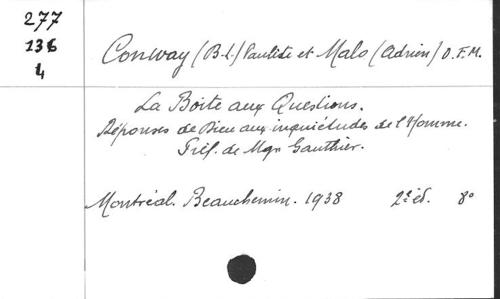 277
136
4
Conway (B-L.) Pauliste et Malo (Adrien) O.F.M.
La Boîte aux Questions.
Réponses de Dieu aux inquiétudes de l'Homme.
Préf. de Mgr Gauthier.
Montréal. Beauchemin. 1938 2e éd. 8o